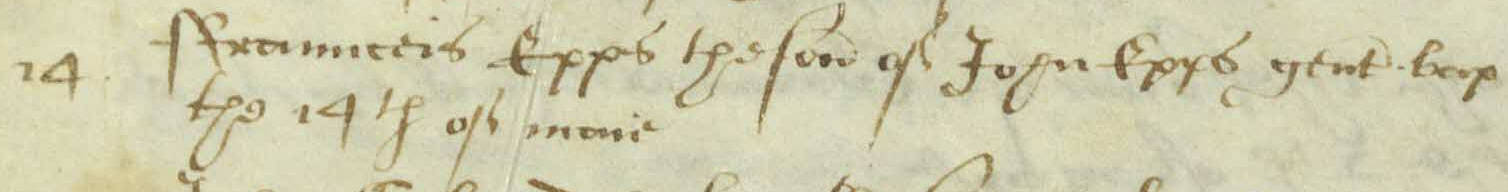 14. ffraunceis Epps the son of John Epps gent. bap
the 14th of maie